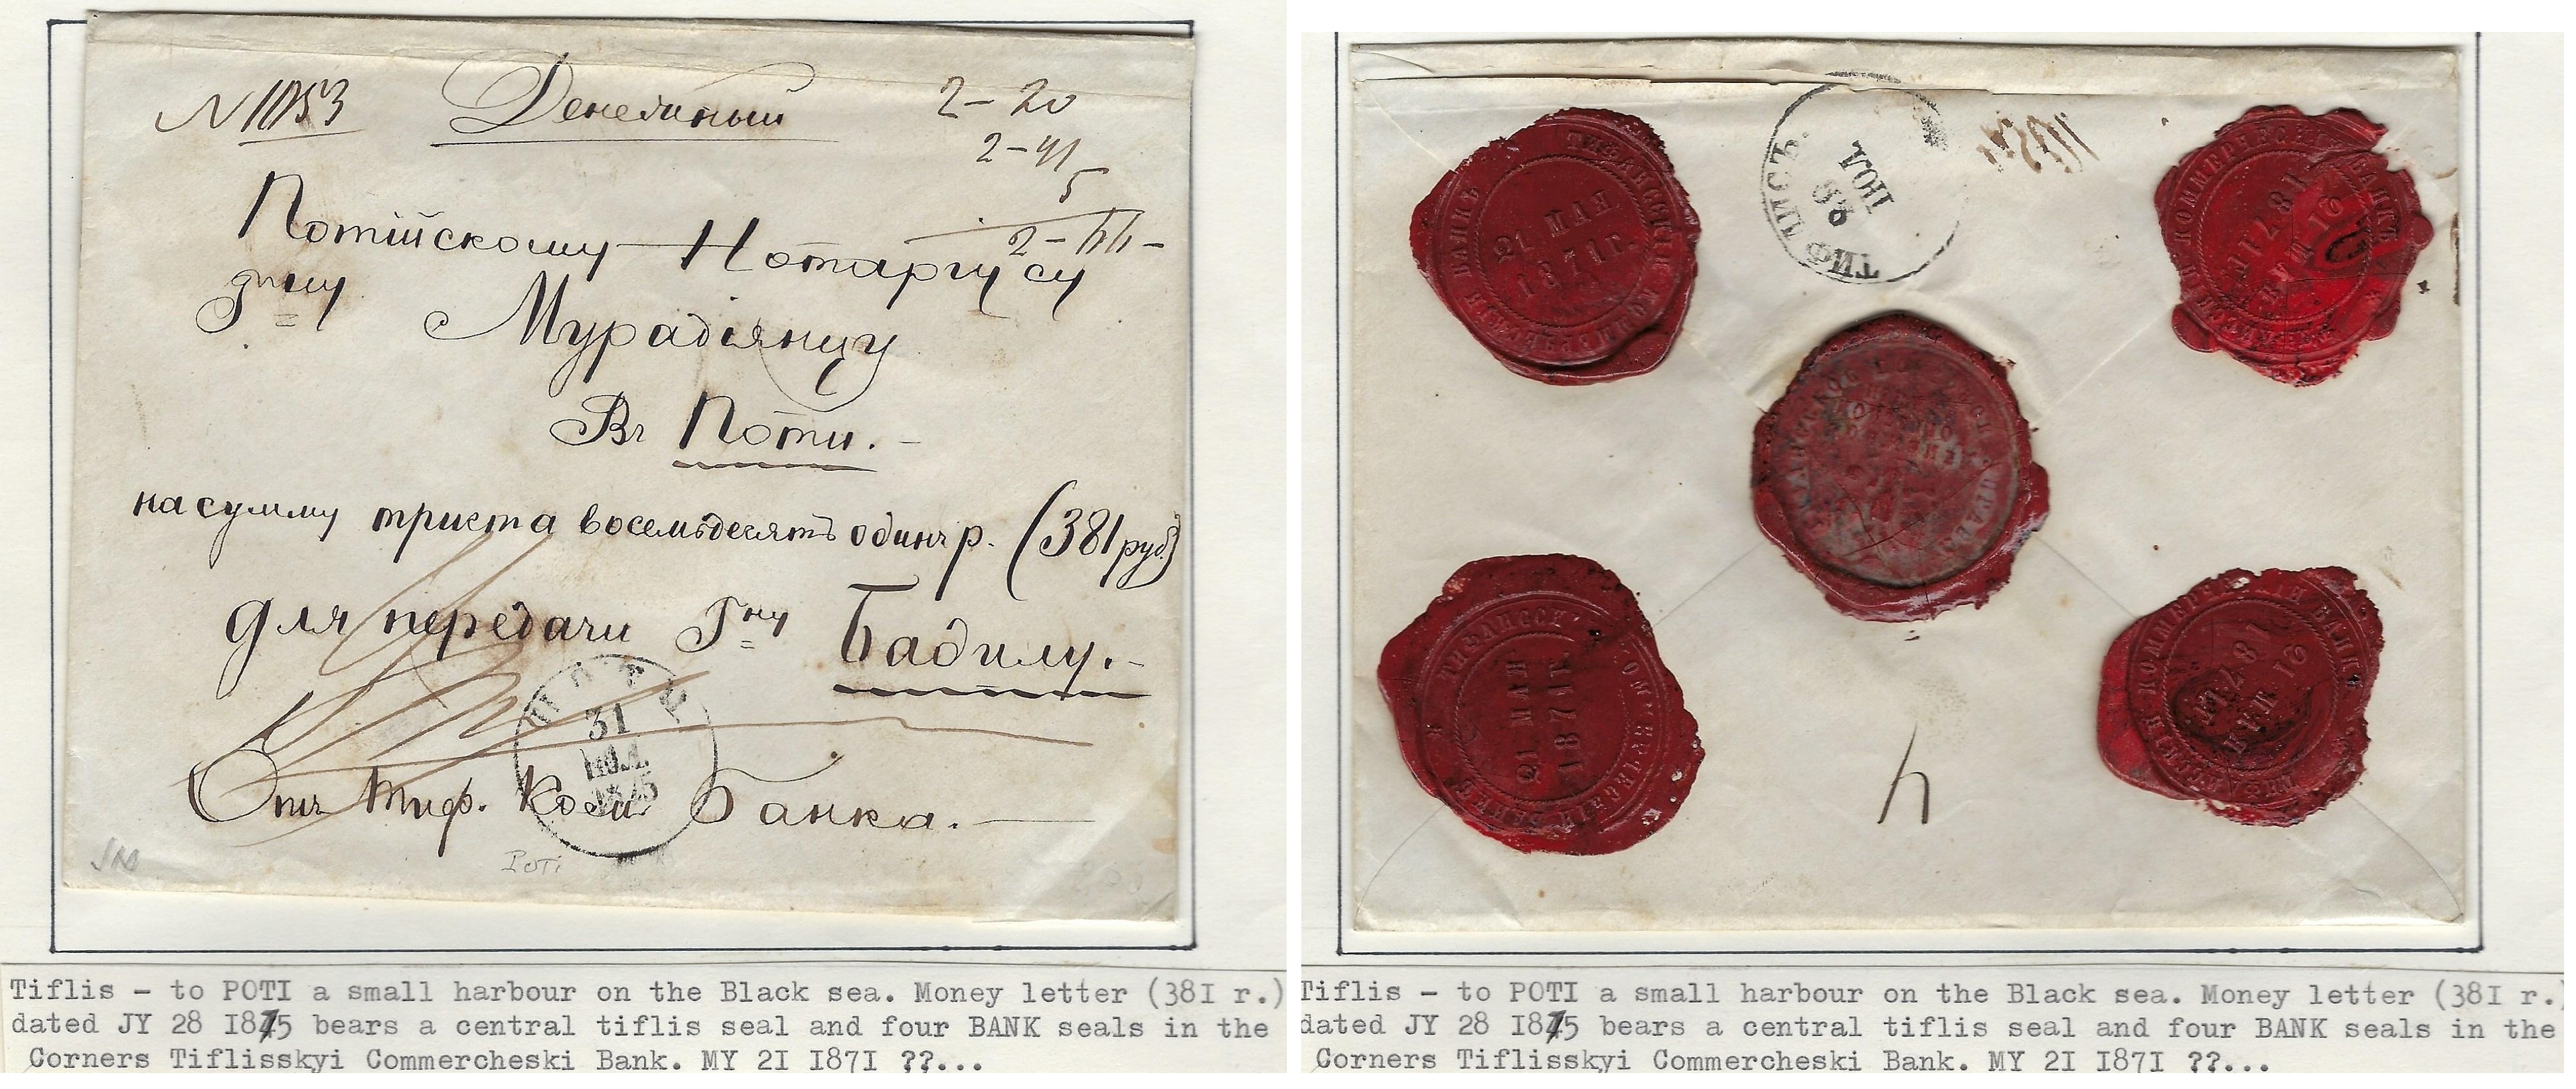 N 1053 Денежный 2-20
2-41
5
Потійскому Нотаріусу
Г-ну Мурадіянцу
Въ Поти.-
на сумму триста восемьдесятъ одинъ р. (381 руб)
для передачи Г-ну Бадилу.-
ПОТИ
31
ІЮЛ.
1875
Отъ Тиф. Ком Банка.
Poti
Tiflis - to POTI a small harbour on the Black sea. Money letter (38I r.)
dated JY 28 I875 bears a central tiflis seal and four BANK seals in the
Corners Tiflisskyi Commercheski Bank. MY 2I I87I ??...
ТИФЛИСЪ.
28
ІЮЛ
ТИФЛИССКІЙ КОММЕРЧЕСКІЙ БАНКЪ
21 МАЯ
1871г.
КОММЕРЧЕСКІЙ БАНКЪ
21 МАЯ
1871г.
ТИФЛИССКІЙ КОММЕРЧЕСКІЙ БАНКЪ
21 МАЯ
1871г.
КОММЕРЧЕСКІЙ БАНКЪ
21 МАЯ
1871г.
4
Tiflis - to POTI a small harbour on the Black sea. Money letter (38I r.)
dated JY 28 I875 bears a central tiflis seal and four BANK seals in the
Corners Tiflisskyi Commercheski Bank. MY 2I I87I ??...